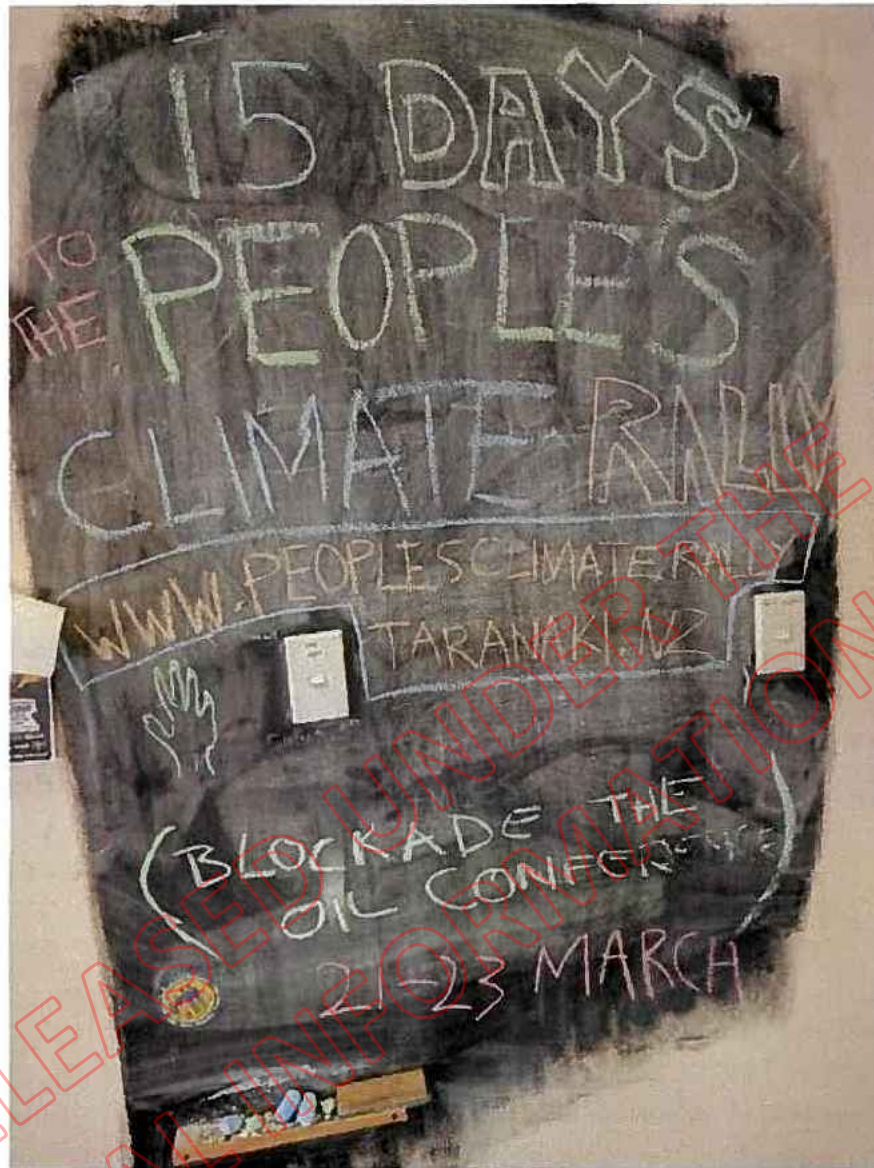 15 DAYS
TO THE PEOPLE'S
CLIMATE RALLY
WWW.PEOPLESCLIMATERALLY
TARANAKI.NZ
(BLOCKADE THE
OIL CONFERENCE)
21-23 MARCH
RELEASED UNDER THE
INFORMATION